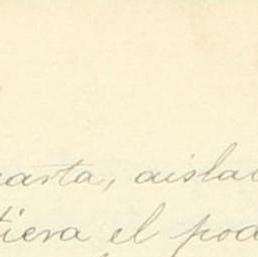 arta, aislad
tiera el pod